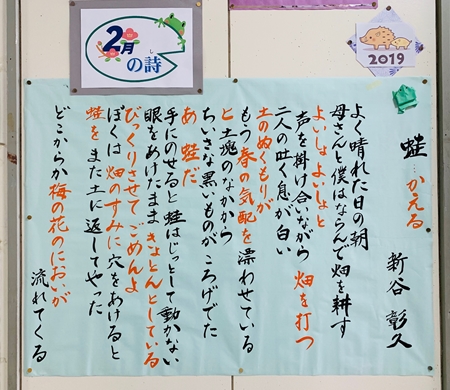 2月の詩
し
2019
蛙…かえる
新谷 彰久
よく晴れた日の朝
母さんと僕はならんで畑を耕す
よいしょよいしょと
声を掛け合いながら 畑を打つ
二人の吐く息が白い
土のぬくもりが
もう 春の気配を 漂わせている
と 土塊のなかから
ちいさな黒いものが ころげでた
あ 蛙だ
手にのせると 蛙はじっとして動かない
眼をあけたまま きょとんとしている
びっくりさせて ごめんよ
ぼくは 畑のすみに 穴をあけると
蛙を また土に返してやった
どこからか梅の花のにおいが
流れてくる